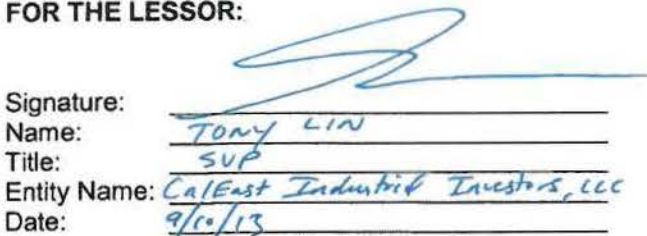 FOR THE LESSOR:
Signature:
Name: TONY LIN
Title: SVP
Entity Name: CalEast Industrial Investors, LLC
Date: 9/10/13